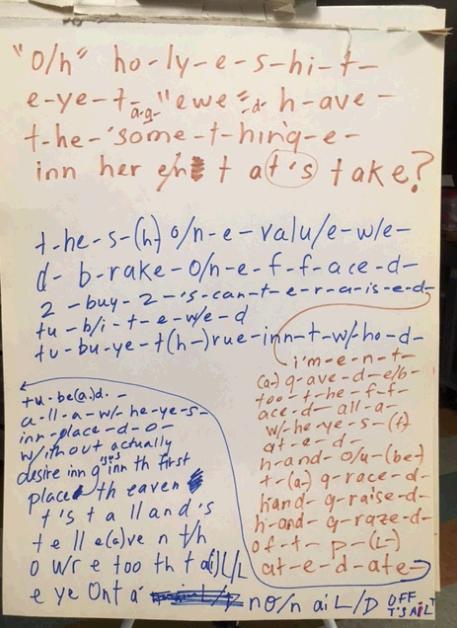 "O/h" ho-ly-e-s-hi-t-
e-ye-t-ag-"ewe=d- h-ave-
t-he-'some-t-hing-e-
inn her e/h t at's take?
t-he-s-(h) o/n-e-valu/e-w/e-
d- b-rake-O/n-e-f-f-ace-d-
2-buy-2-'s-can-t-e-r-a-is-e-d-
tu-b/i-t-e-w/e-d
tu-bu-ye-t(h-)rue-inn-t-w/ho-d-
i'm-e-n-t-
(a-) g-ave-d-e/b-
too-t-he-f-f-
ace-d- all-a-
w/-he-ye-s-(f)
at-e-d-
h-and-o/u-(be-)
t-(a-) g-race-d-
hand-g-raise-d-
h-and-g-raze-d-
of-t- p-(L-)
at-e-d-ate-
tu-be(a)d-
a-ll-a-w/-he-ye-s-
inn-place-d-o-
w/ithout actually
desire inn g'ises inn th first
place th eaven
t's ta ll and's
te ll e(a)ve n t/h
o w/r e too th t a(i)L/L
e ye Ont a' nO/n aiL/D OFF
T'S AiL T